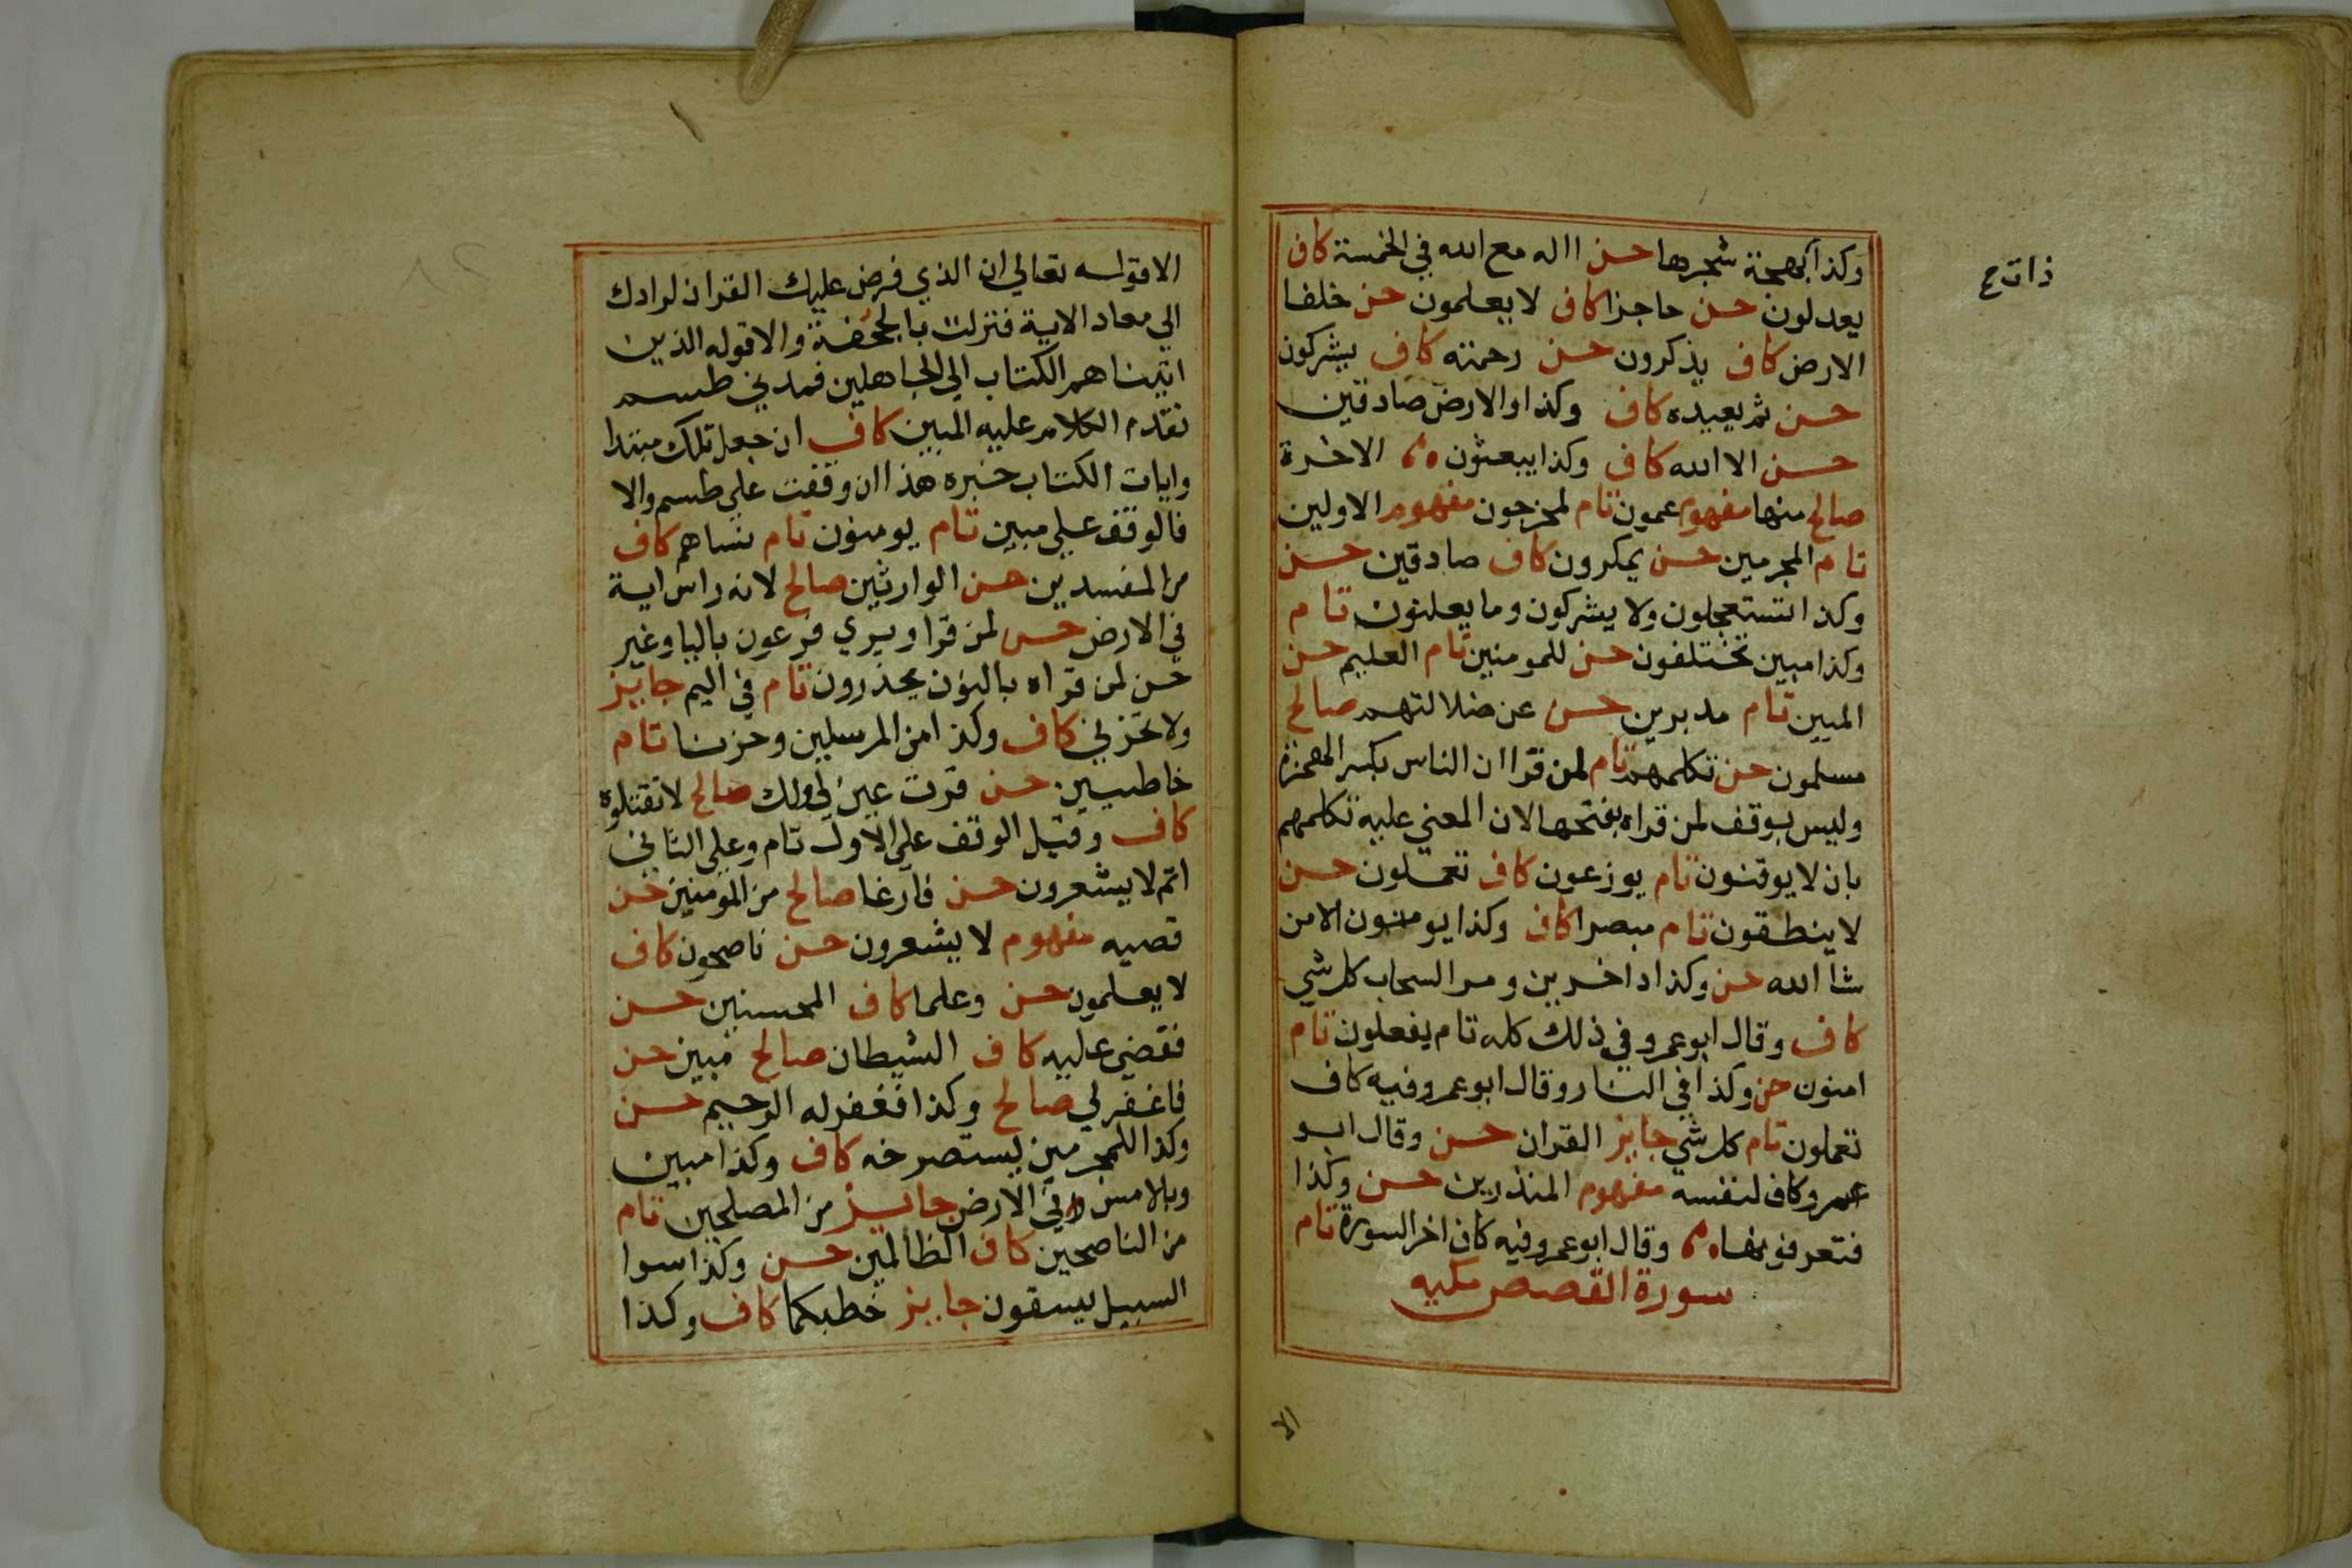 وكذا بهجة شجرها حسن االه مع الله في الخمسة كاف
ذات ع
يعدلون حسن حاجزا كاف لا يعلمون حسن خلفا
الارض كاف يذكرون حسن رحمته كاف يشركون
حسن ثم يعيده كاف وكذا والارض صادقين
حسن الا الله كاف وكذا يبعثون الاخرة
صالح منها مفهوم عمون تام لمخرجون مفهوم الاولين
تام المجرمين حسن يمكرون كاف صادقين حسن
وكذا تستعجلون ولا يشركون وما يعلنون تام
وكذا مبين تختلفون حسن للمومنين تام العليم حسن
المبين تام مدبرين حسن عن ضلالتهم صالح
مسلمون حسن تكلمهم تام لمن قرا ان الناس بكسر الهمزة
وليس بوقف لمن قراه بفتحها لان المعني عليه تكلمهم
بان لا يوقنون تام يوزعون كاف تعملون حسن
لا ينطقون تام مبصرا كاف وكذا يومنون الا من
شا الله حسن وكذا داخرين ومر السحاب كل شي
كاف وقال ابو عمرو في ذلك كله تام يفعلون تام
امنون حسن وكذا في النار وقال ابو عمرو فيه كاف
تعملون تام كل شي جايز القران حسن وقال ابو
عمرو كاف لنفسه مفهوم المنذرين حسن وكذا
فتعرفونها وقال ابو عمرو فيه كاف اخر السورة تام
سورة القصص مكيه
الا
الا قوله تعالي ان الذي فرض عليك القران لرادك
الي معاد الاية فنزلت بالجحفة والا قوله الذين
اتيناهم الكتاب الي الجاهلين فمدني طسم
تقدم الكلام عليه المبين كاف ان جعل تلك مبتدا
وايات الكتاب خبره هذا ان وقفت علي طسم والا
فالوقف علي مبين تام يومنون تام نساهم كاف
من المفسدين حسن الوارثين صالح لانه راس اية
في الارض حسن لمن قرا ويري فرعون باليا وغير
حسن لمن قراه بالنون يحذرون تام في اليم جايز
ولا تحزني كاف وكذا من المرسلين وحزنا تام
خاطيين حسن قرت عين لي ولك صالح لا تقتلوه
كاف وقيل الوقف علي الاول تام وعلي الثاني
اتم لا يشعرون حسن فارغا صالح من المومنين حسن
قصيه مفهوم لا يشعرون حسن ناصحون كاف
لا يعلمون حسن وعلما كاف المحسنين حسن
فقضي عليه كاف الشيطان صالح مبين حسن
فاغفر لي صالح وكذا فغفر له الرحيم حسن
وكذا للمجرمين يستصرخه كاف وكذا مبين
وبالامس في الارض جايز من المصلحين تام
من الناصحين كاف الظالمين حسن وكذا سوا
السبيل يسقون جايز خطبكما كاف وكذا